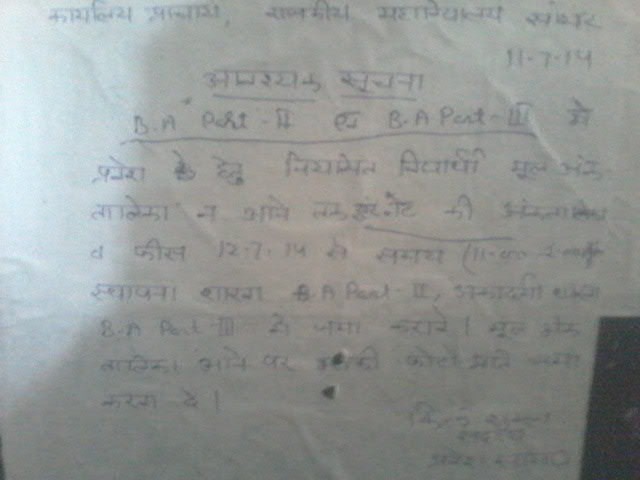 कार्यालय प्राचार्य, राजकीय महाविद्यालय सांभर
11-7-14
आवश्यक सूचना
B.A Part-II एवं B.A Part-III में
प्रवेश के हेतु नियमित विद्यार्थी मूल अंक
तालिका न आने तक इन्टरनेट की अंकतालिका
व फीस 12-7-14 से समय (11-00
स्थापना शाखा B.A Part-II, अकादमी शाखा
B.A Part-III में जमा करावें। मूल अंक
तालिका आने पर उसकी फोटो प्रति जमा
करवा दें।